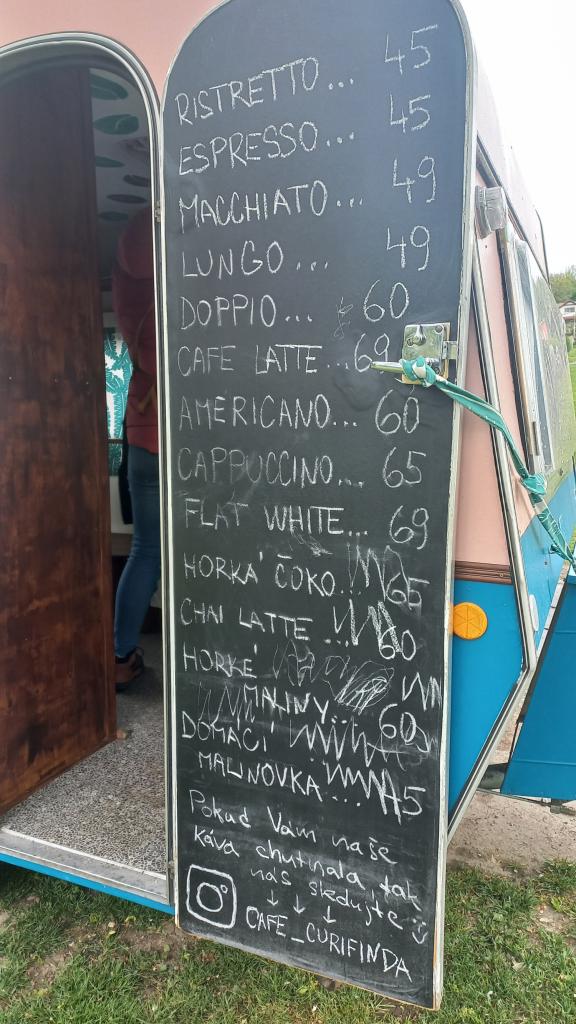 RISTRETTO... 45
ESPRESSO... 45
MACCHIATO... 49
LUNGO... 49
DOPPIO... 60
CAFE LATTE... 69
AMERICANO... 60
CAPPUCCINO... 65
FLAT WHITE... 69
HORKÁ ČOKO... 65
CHAI LATTE... 60
HORKÉ
MALINY... 60
DOMACÍ
MALINOVKA.... 45
Pokud Vám naše
káva chutnala, tak
nás sledujte :)
↓ ↓ ↓
CAFE_CURIFINDA